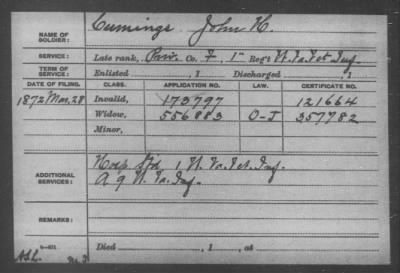 NAME OF SOLDIER: Cumings John H.
SERVICE: Late rank, Priv. Co. F, 1" Reg't W. Va. Vet Inf.
TERM OF SERVICE: Enlisted , 1 Discharged , 1
DATE OF FILING. CLASS. APPLICATION NO. LAW. CERTIFICATE NO.
1872 Mar. 28 Invalid, 173797 121664
Widow, 556883 O-J 357782
Minor,
ADDITIONAL SERVICES: Hosp Std 1 W. Va. Vet. Inf.
A 9 W. Va. Inf.
REMARKS:
Died , 1 , at